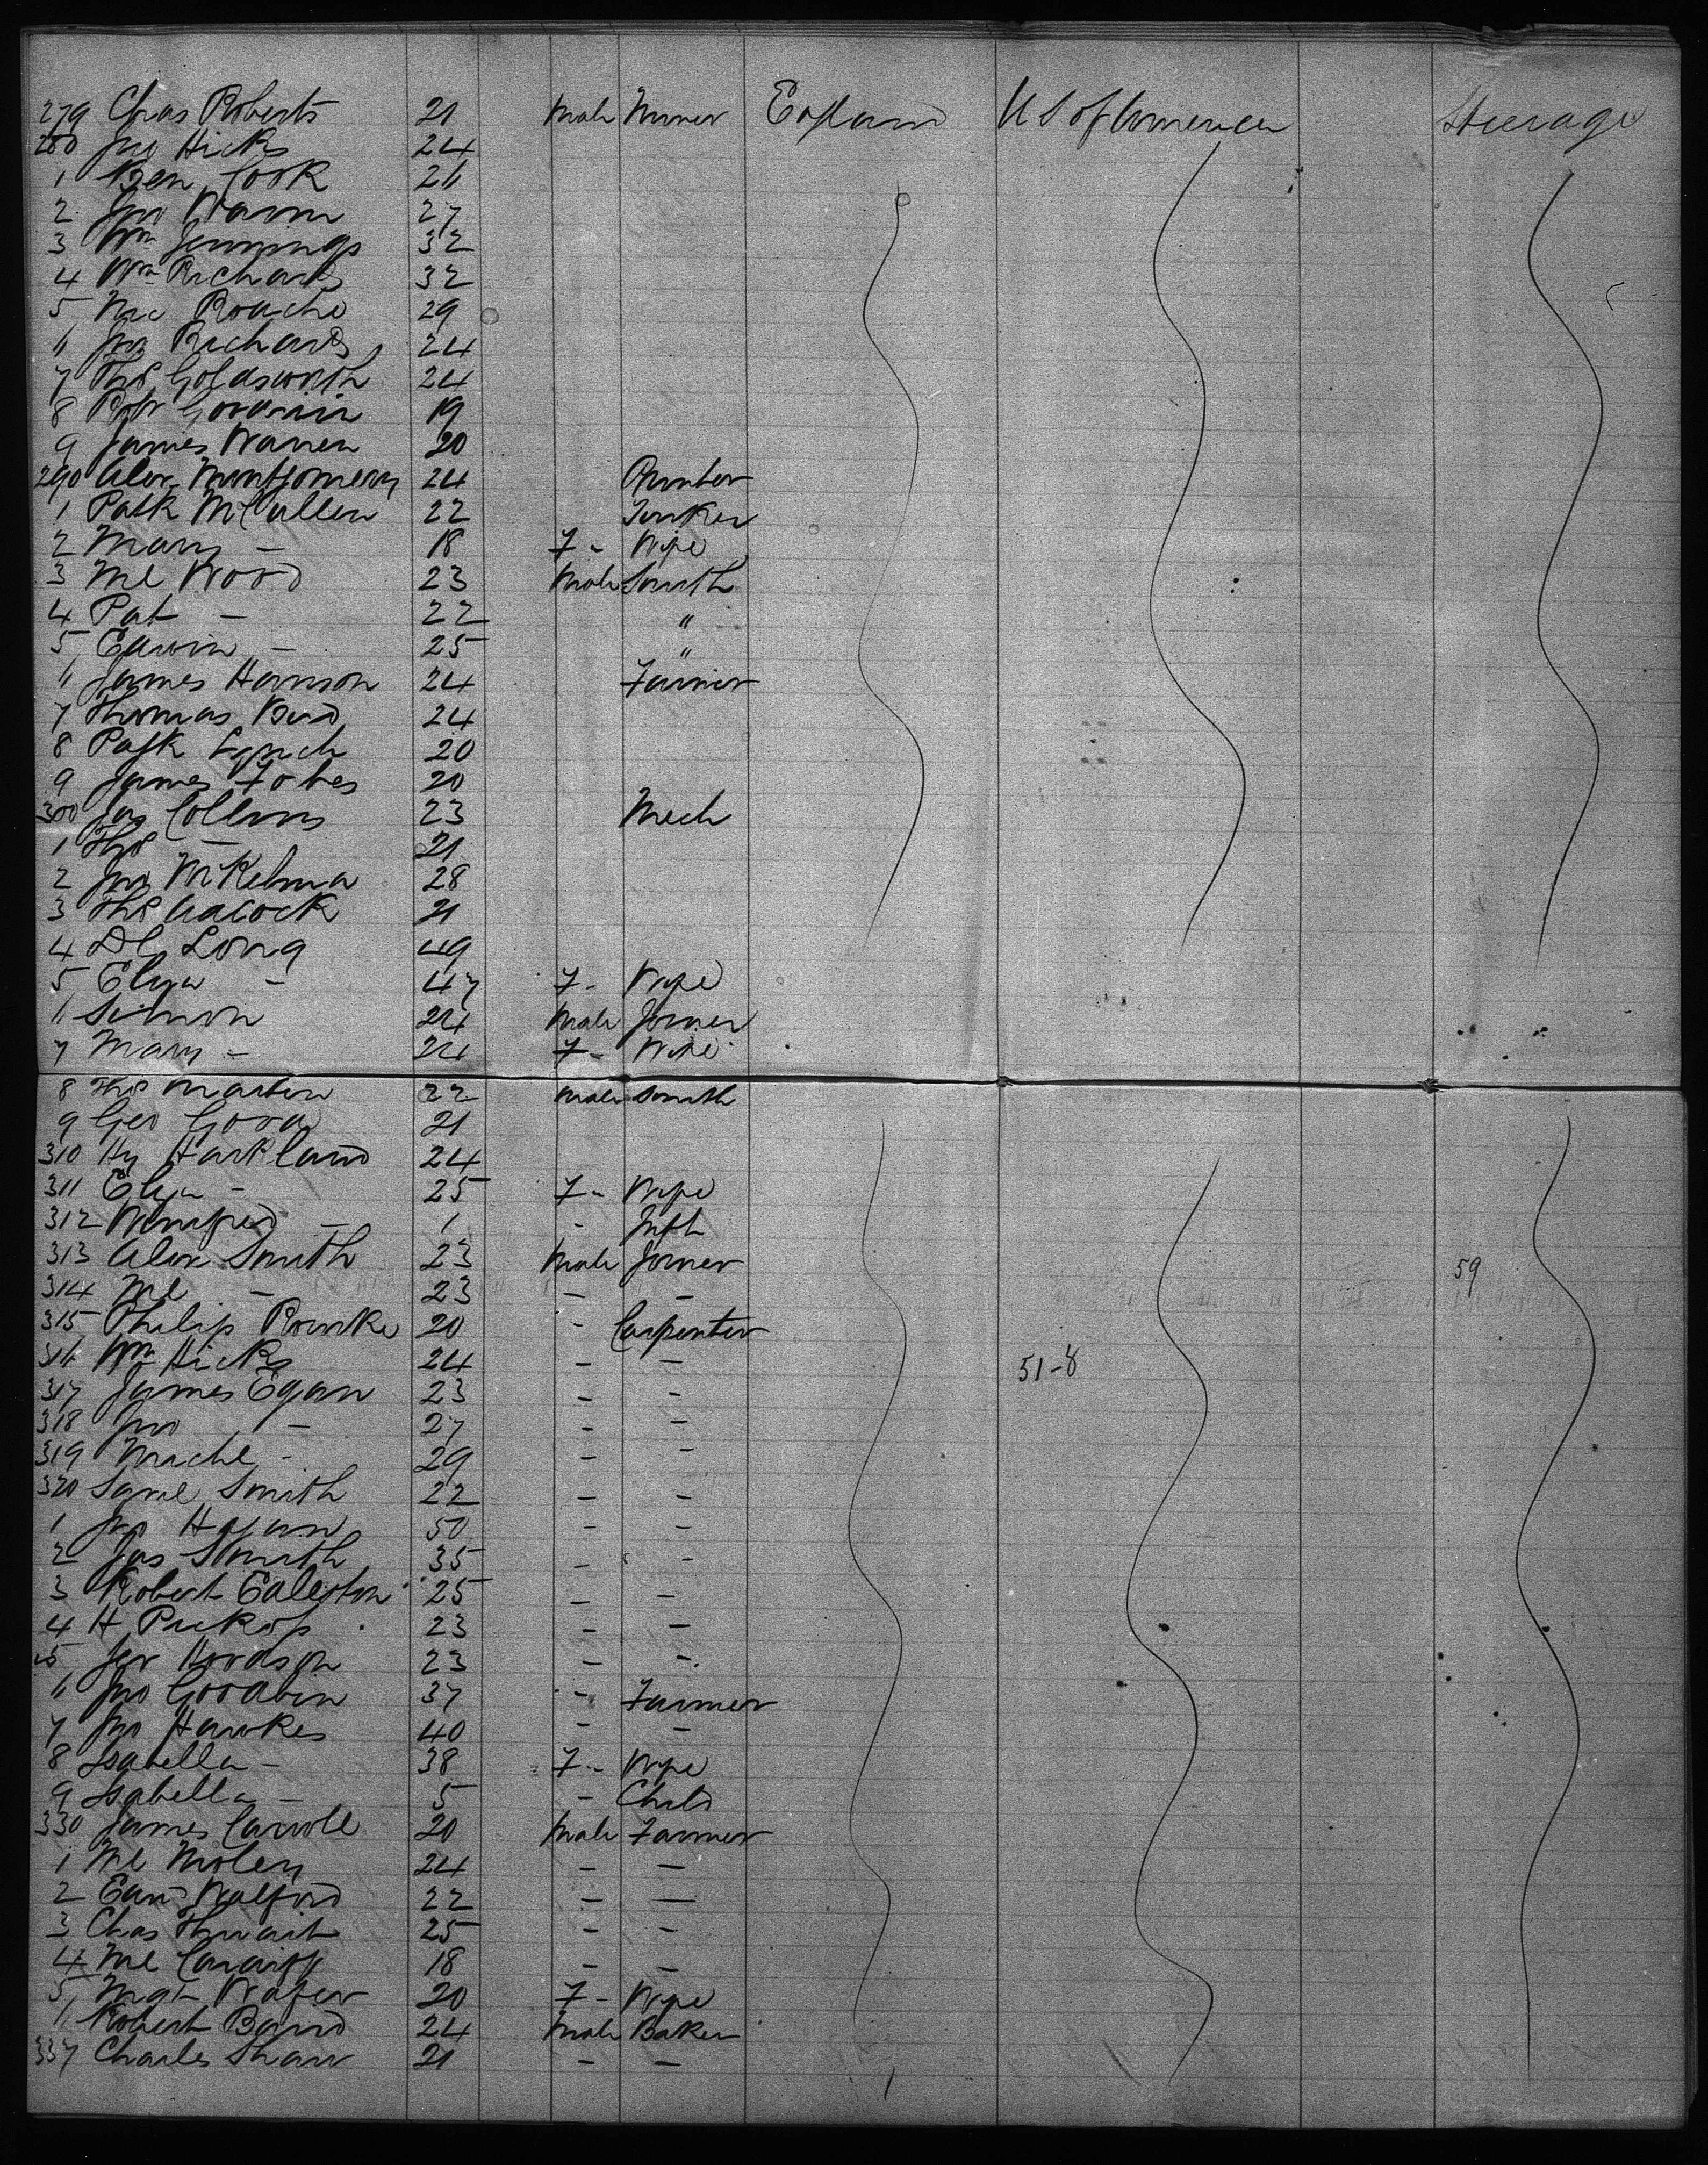 279 Chas Roberts 21 Male Miner England U S of America Steerage
280 Jno Hicks 24
1 Ben Cook 26
2 Jno Warm 27
3 Wm Jennings 32
4 Wm Richards 32
5 Roache 29
6 Jno Richards 24
7 Thos Goldsworth 24
8 Robt Goodwin 19
9 James Warren 20
290 Alex Montgomery 24
1 Patk McCullen 22 Tinker
2 Mary - 18 F - Wife
3 Ml Wood 23 Male Smith
4 Pat - 22 "
5 Edwin - 25 "
6 James Hanson 24 Farmer
7 Thomas 24
8 Patk Lynch 20
9 James Fobes 20
300 Jas Collins 23 Mech
1 Thos - 21
2 Jno 28
3 Thos Adcock 21
4 Dl Long 49
5 Eliza - 47 F - Wife
6 Simon 24 Male Joiner
7 Mary - 24 F - Wife
8 Thos Martin 22 Male Smith
9 Geo Good 21
310 Hy Harkland 24
311 Eliza - 25 F - Wife
312 Winifred - 1 - Inft
313 Alex Smith 23 Male Joiner 59
314 Ml - 23 - -
315 Philip Rourke 20 - Carpenter
316 Wm Hicks 24 - - 51-8
317 James Egan 23 - -
318 Jno - 27 - -
319 Michl - 29 - -
320 Saml Smith 22 - -
1 Jno Hogan 50 - -
2 Jas Smith 35 - -
3 Robert Egleston 25 - -
4 H Pickop 23 - -
25 Hoodson 23 - -
6 Jno Goodwin 37 - Farmer
7 Jno Hawkes 40 - -
8 Isabella - 38 F - Wife
9 Isabella - 5 - Child
330 James Carroll 20 Male Farmer
1 Ml Moley 24 - -
2 Edwd Walford 22 - -
3 Chas Thwait 25 - -
4 Ml 18 - -
5 Mgt Wafer 20 F - Wife
6 Robert Baird 24 Male Baker
337 Charles Shaw 21 - -